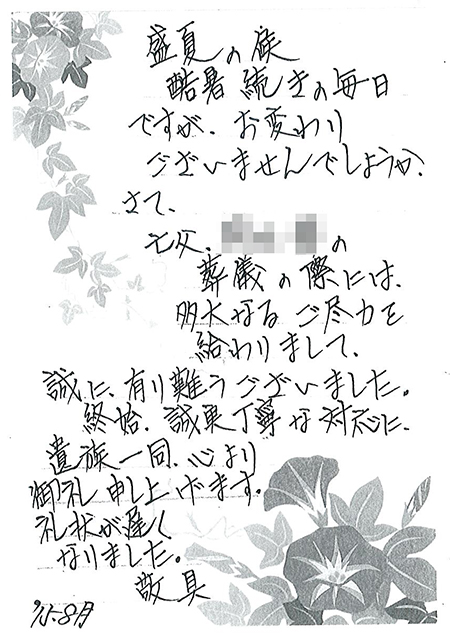 盛夏の候
酷暑続きの毎日
ですが、お変わり
ございませんでしょうか。
さて、
亡父、
の
葬儀の際には、
多大なるご尽力を
給わりまして、
誠に、有り難うございました。
終始、誠果丁寧な対応に、
遺族一同、心より
御礼申し上げます。
礼状が遅く
なりました。
敬具
8月